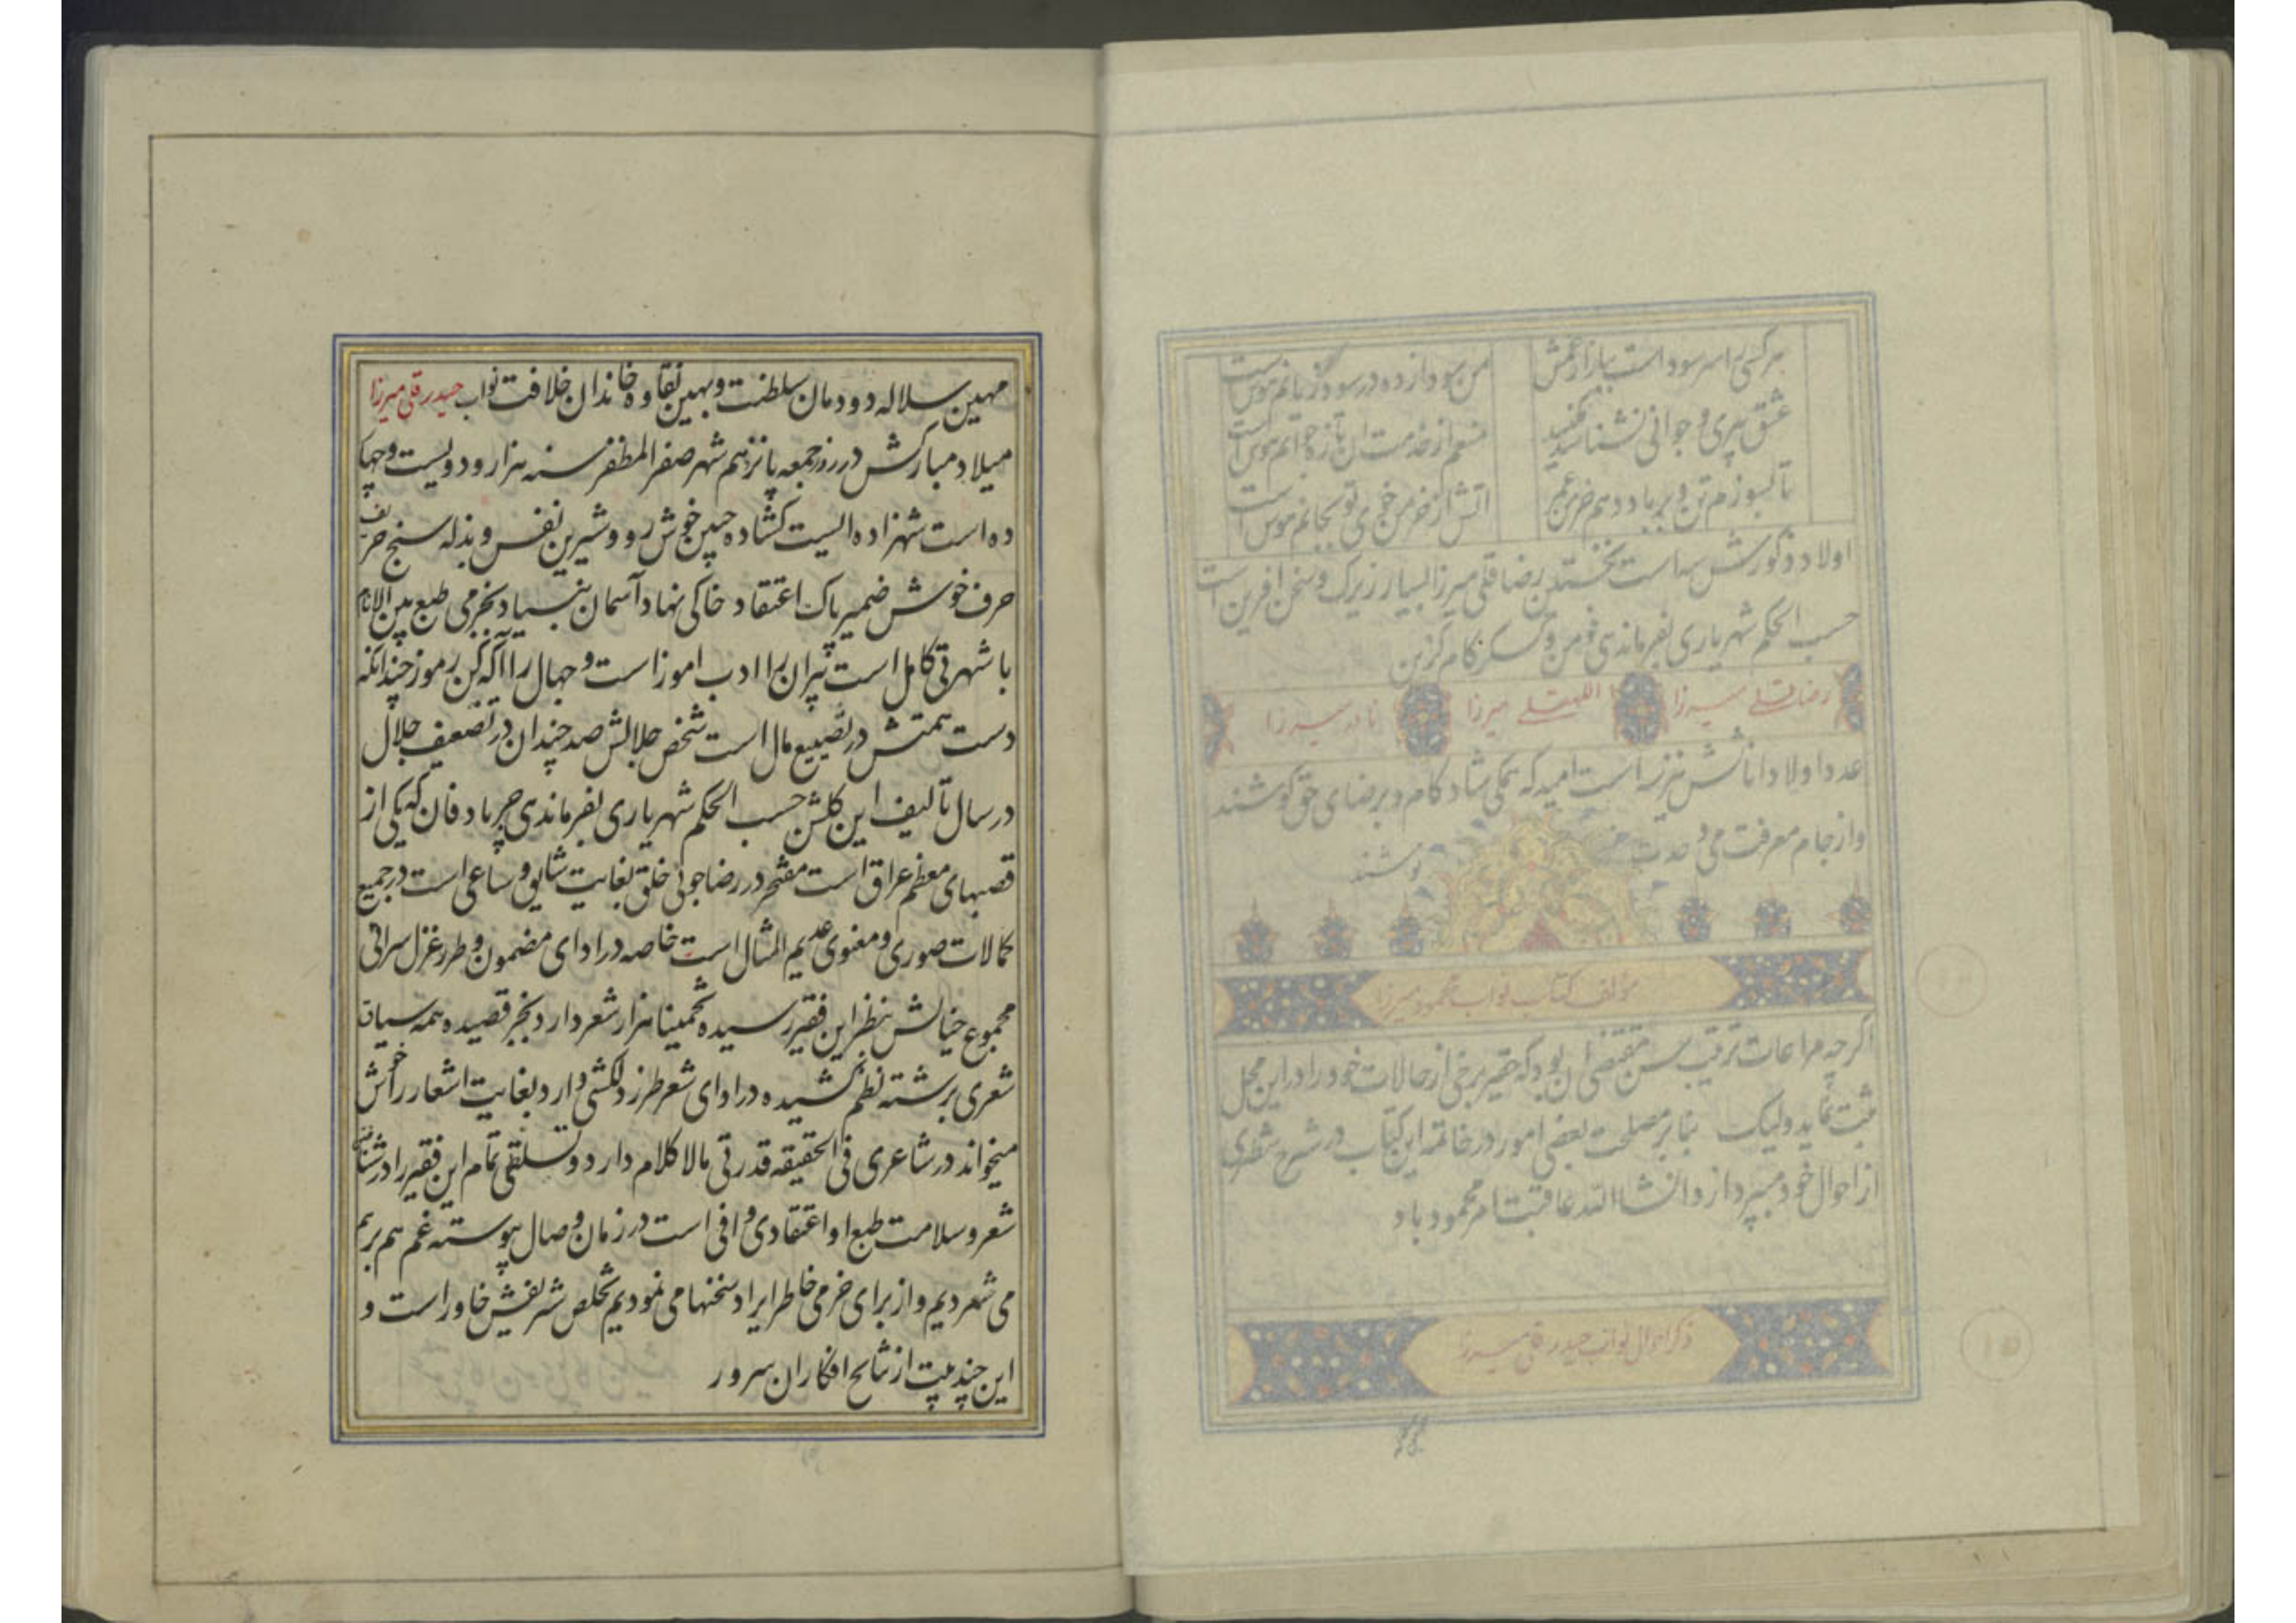 هر کسی را سر سوداست ببازار غمش
من سودازده در سود و زیانم هوس است
عشق پیری و جوانی نشناسد
منعم از خدمت آن تازه جوانم هوس است
تا بسوزم تن و بر باد دهم خرمن عمر
آتش از خرمن خوی تو بجانم هوس است
اولاد ذکورش سه است نخستین رضاقلی میرزا بسیار زیرک و سخن آفرین است
حسب الحکم شهریاری بفرماندهی و
رضاقلی میرزا
اللهقلی میرزا
نادر میرزا
عدد اولاد اناثش نیز سه است امید که همگی شاد کام و بر رضای حق کوشند
و از جام معرفت می وحدت نوشند
مؤلف کتاب نواب محمود میرزا
اگر چه مراعات ترتیب سن مقتضی آن بود که حقیر برخی از حالات خود را در این محل
ثبت نماید ولیک بنا بر مصلحت بعضی امور در خاتمه این کتاب در شرح شطری
از احوال خود میپردازد انشاالله عاقبتت امر محمود باد
ذکر احوال نواب حیدر قلی میرزا
مهین سلاله دودمان سلطنت و بهین نقاوه خاندان خلافت نواب حیدر قلی میرزا
میلاد مبارکش در روز جمعه پانزدهم شهر صفر المظفر سنه هزار و دویست و چها
ده است شهزاده ایست کشاده جبین خوش رو و شیرین نفس و بذله سنج
حرف خوش ضمیر پاک اعتقاد خاکی نهاد آسمان بنیاد بخرمی طبع بین الانام
با شهرتی کامل است پیران را ادب اموز است و جهال را آگه کن رموز چندانکه
دست همتش در تضییع مال است شخص جلالش صد چندان در تضعیف جلال
در سال تألیف این گلشن حسب الحکم شهریاری بفرماندهی جرباد فان که یکی از
قصبهای معظم عراق است مفتخر در رضا جوئی خلق بغایت شایق و ساعی است در جمیع
کمالات صوری و معنوی عدیم المثال است خاصه در ادای مضمون و طرز غزل سرائی
مجموع خیالش بنظر این فقیر رسیده تخمینا هزار شعر دارد بخبر قصیده همه سیاق
شعری برشته نظم کشیده در ادای شعر طرز دلکشی دارد بغایت اشعار را خوش
میخواند در شاعری فی الحقیقه قدرتی مالا کلام دارد و تسلقی تمام این فقیر را در
شعر و سلامت طبع او اعتقادی وافی است در زمان وصال پیوسته غم هم بر هم
می شمردیم و از برای خرمی خاطر ایراد سخنها می نمودیم تخلص شریفش خاور است و
این چند بیت از نتایج افکار ان سرور